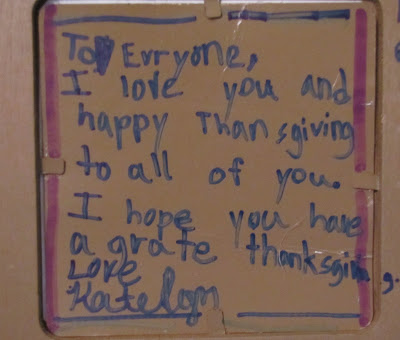 To Evryone,
I love you and
happy Thansgiving
to all of you.
I hope you have
a grate thanksgiving.
Love
Katelyn